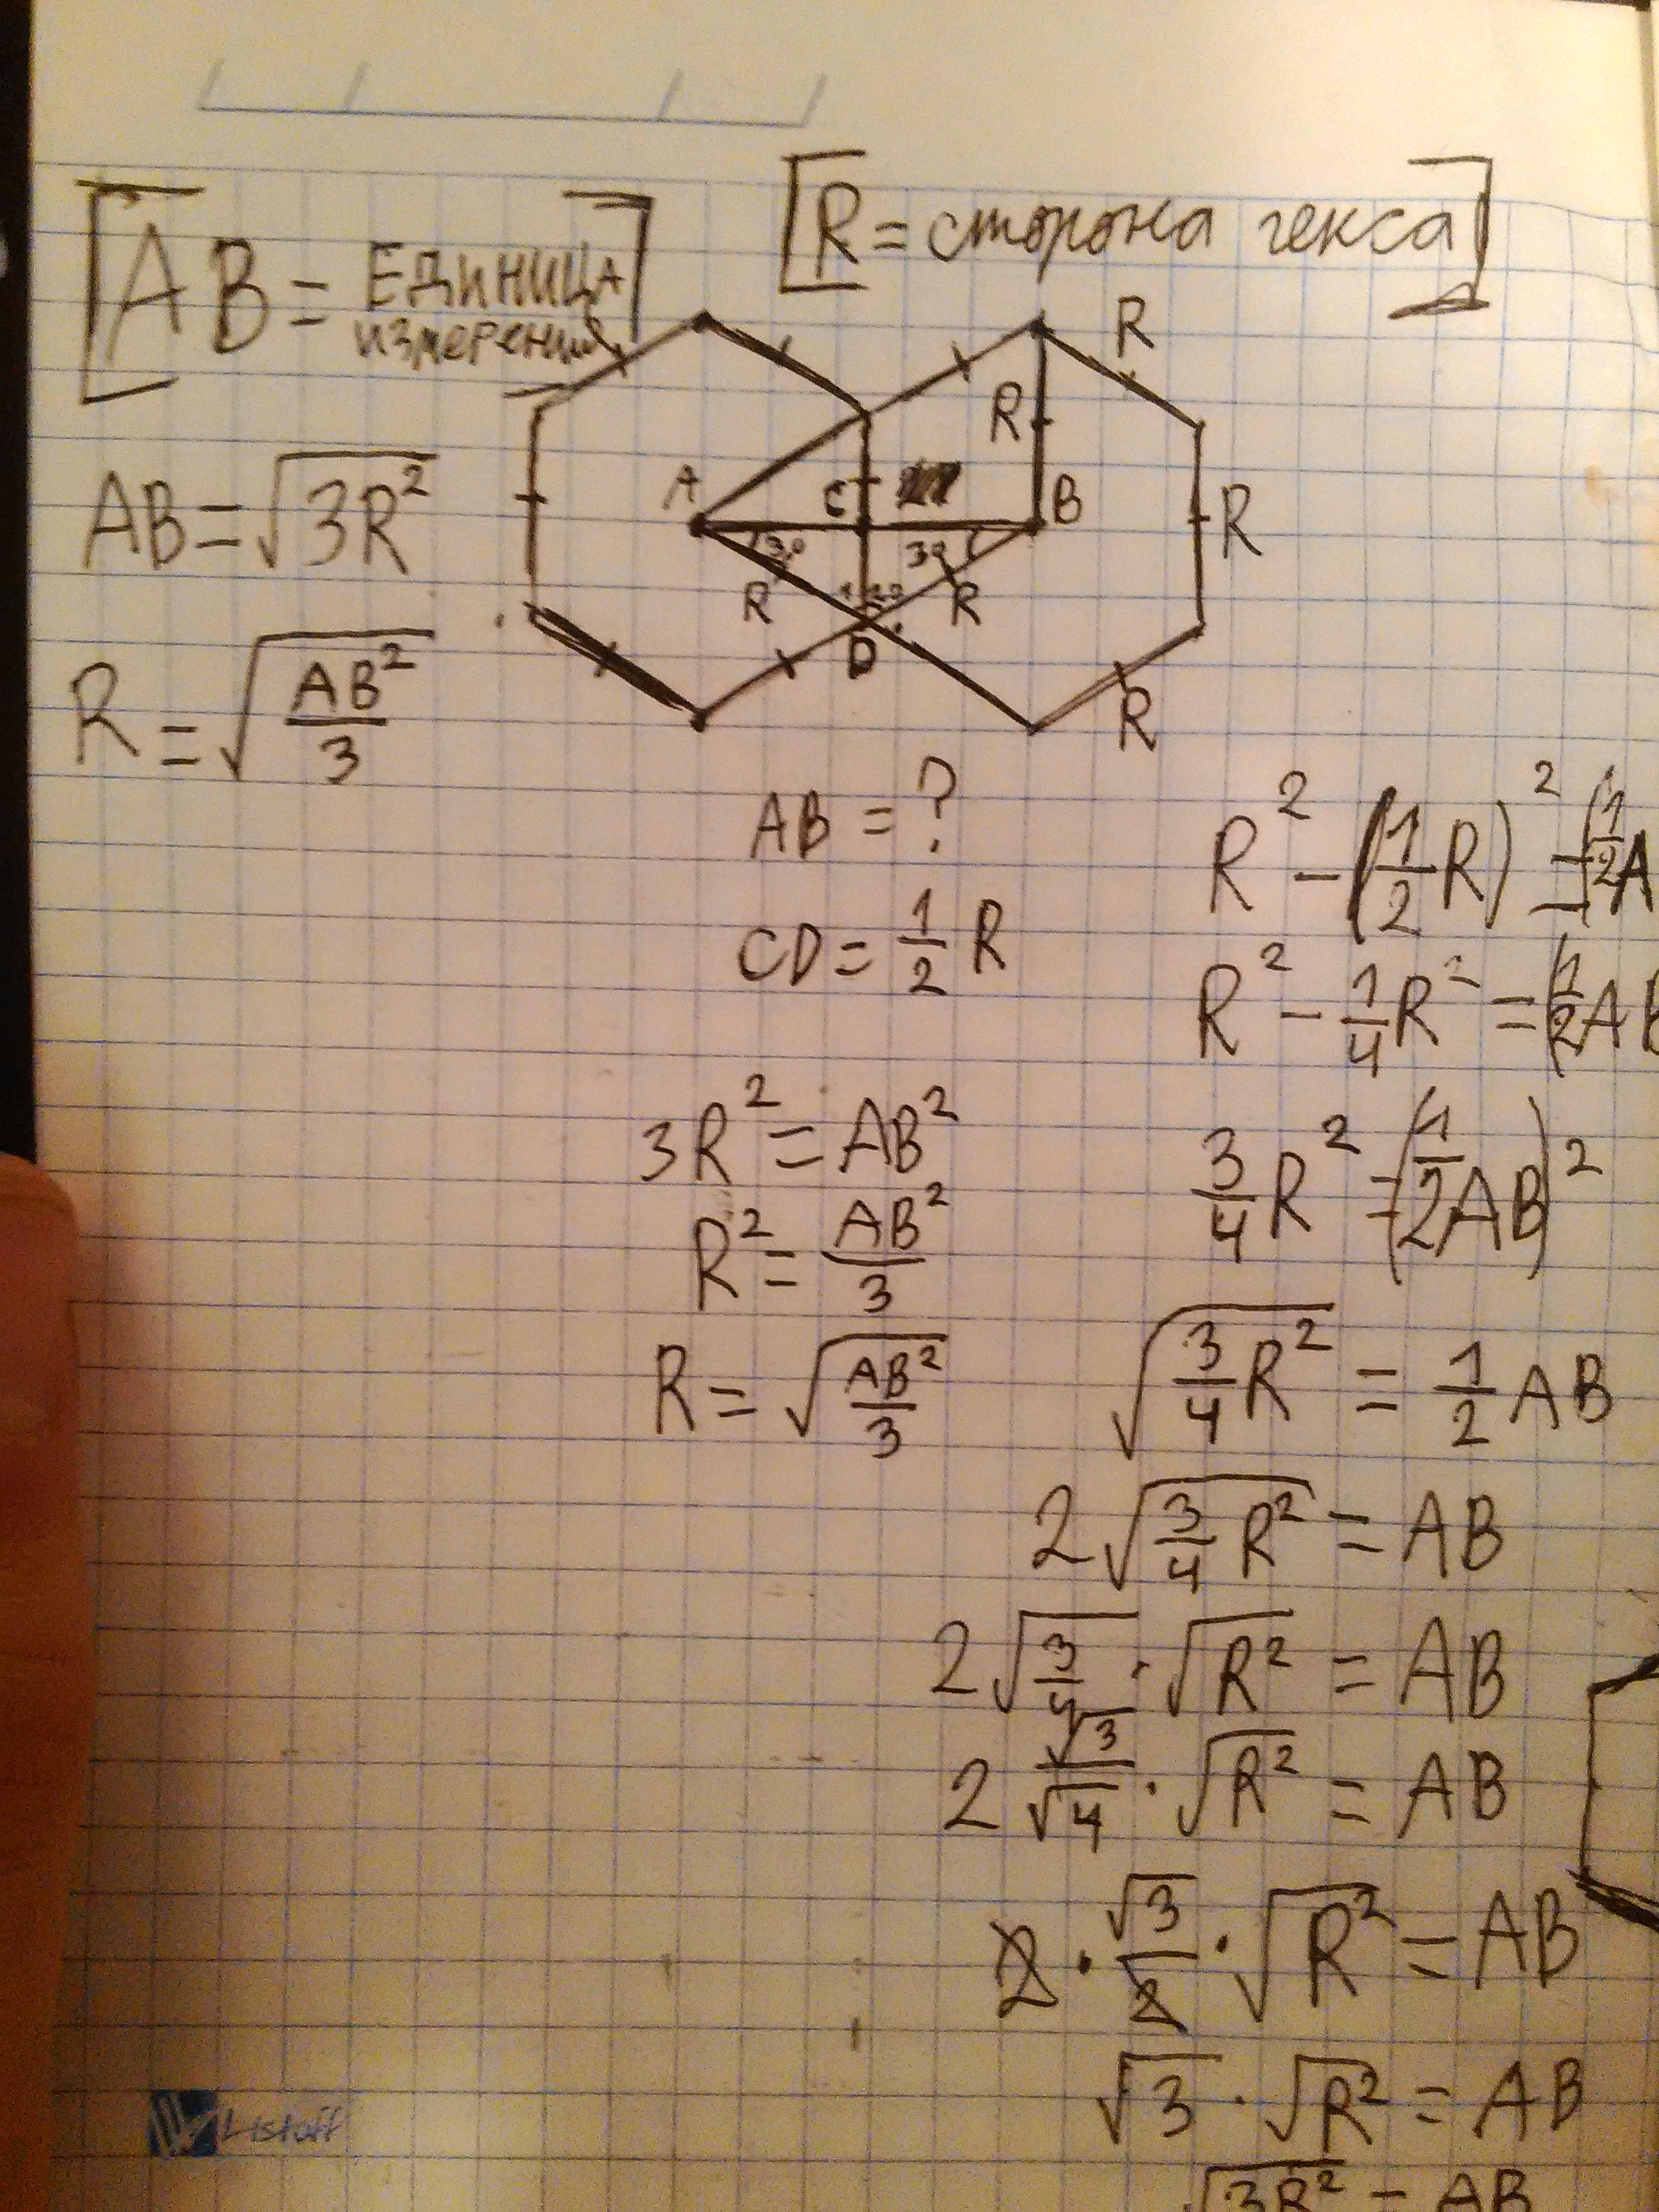 [AB = ЕДИНИЦА измерения]
[R = сторона гекса]
AB = √3R²
R = √(AB²/3)
R
R
A
C
B
R
30
30
R
120
R
D
R
AB = ?
CD = 1/2 R
R² - (1/2 R)² = (1/2 A
R² - 1/4 R² = (1/2 AB
3R² = AB²
R² = AB²/3
R = √(AB²/3)
3/4 R² = (1/2 AB)²
√(3/4 R²) = 1/2 AB
2√(3/4 R²) = AB
2√(3/4) · √R² = AB
2 √3/√4 · √R² = AB
2 · √3/2 · √R² = AB
√3 · √R² = AB
√3R² = AB
Listoff